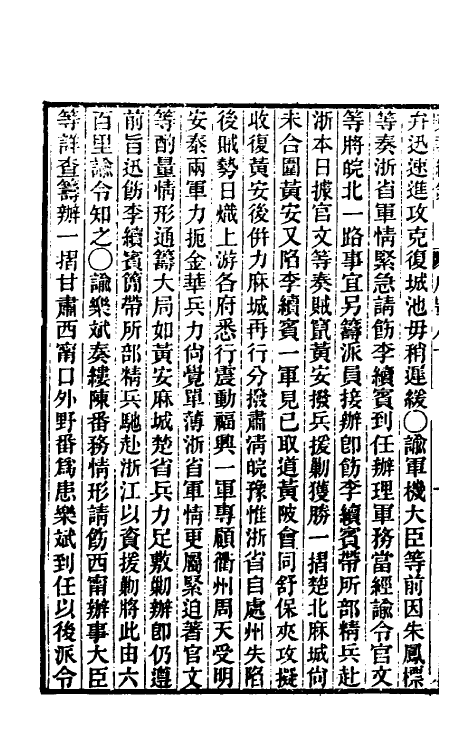 弁迅速進攻克復城池毋稍遲緩〇諭軍機大臣等前因朱鳳標
等奏浙省軍情緊急請飭李續賓到任辦理軍務當經諭令官文
等將皖北一路事宜另籌派員接辦卽飭李續賓帶所部精兵赴
浙本日據官文等奏賊竄黃安撥兵援勦獲勝一摺楚北麻城尙
未合圍黃安又陷李續賓一軍見已取道黃陂會同舒保夾攻擬
收復黃安後併力麻城再行分撥肅清皖豫惟浙省自處州失陷
後賊勢日熾上游各府悉行震動福興一軍專顧衢州周天受明
安泰兩軍力扼金華兵力尙覺單薄浙省軍情更屬緊迫著官文
等酌量情形通籌大局如黃安麻城楚省兵力足敷勦辦卽仍遵
前旨迅飭李續賓簡帶所部精兵馳赴浙江以資援勦將此由六
百里諭令知之〇諭樂斌奏縷陳番務情形請飭西甯辦事大臣
等詳查籌辦一摺甘肅西甯口外野番爲患樂斌到任以後派令